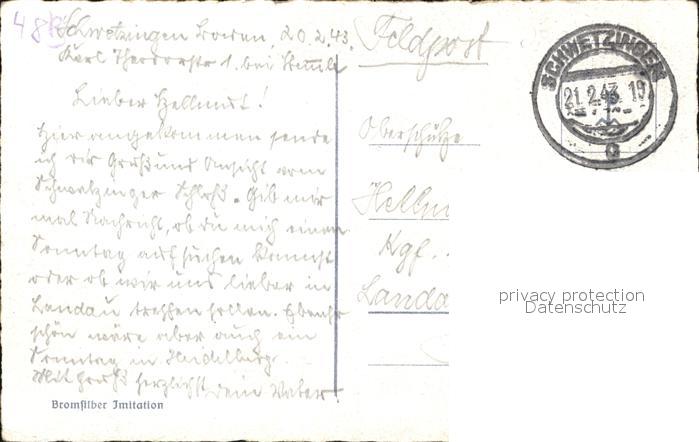 48B
Schwetzingen Baden, 20.2.43.
Karl Theodorstr 1. bei
Lieber Hellmut!
Hier angekommen sende
ich dir Gruß und Ansicht vom
Schwetzinger Schloß. Gib mir
mal Nachricht, ob du mich einen
Sonntag aufsuchen kannst
oder ob wir uns lieber in
Landau treffen sollen. Ebenso
schön wäre aber auch ein
Sonntag in Heidelberg.
Mit Gruß herzlichst dein Vater!
Bromsilber Imitation
Feldpost
SCHWETZINGEN
21.2.43.19
a
Oberschütze
Hellm
Kgf.
Landa
privacy protection
Datenschutz